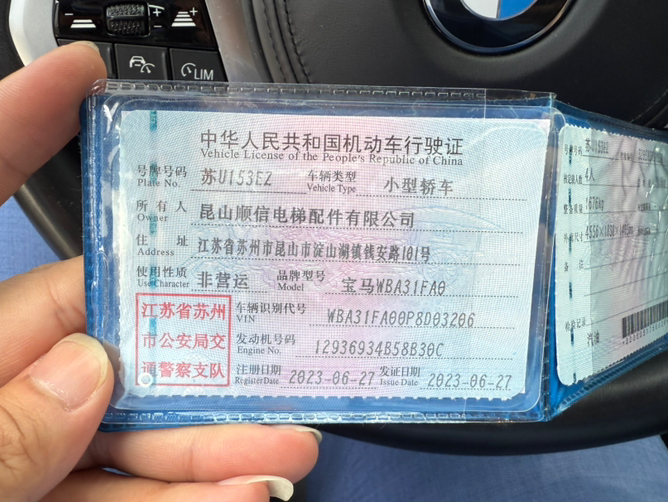 LIM
中华人民共和国机动车行驶证
Vehicle License of the People's Republic of China
号牌号码 苏U153EZ 车辆类型 小型轿车
Plate No. Vehicle Type
所有人 昆山顺信电梯配件有限公司
Owner
住址 江苏省苏州市昆山市淀山湖镇钱安路101号
Address
使用性质 非营运 品牌型号 宝马WBA31FA0
Use Character Model
江苏省苏州
市公安局交
通警察支队
车辆识别代号 WBA31FA00P8D03206
VIN
发动机号码 12936934B58B30C
Engine No.
注册日期 2023-06-27 发证日期 2023-06-27
Register Date Issue Date
号牌号码 苏U153EZ
4人